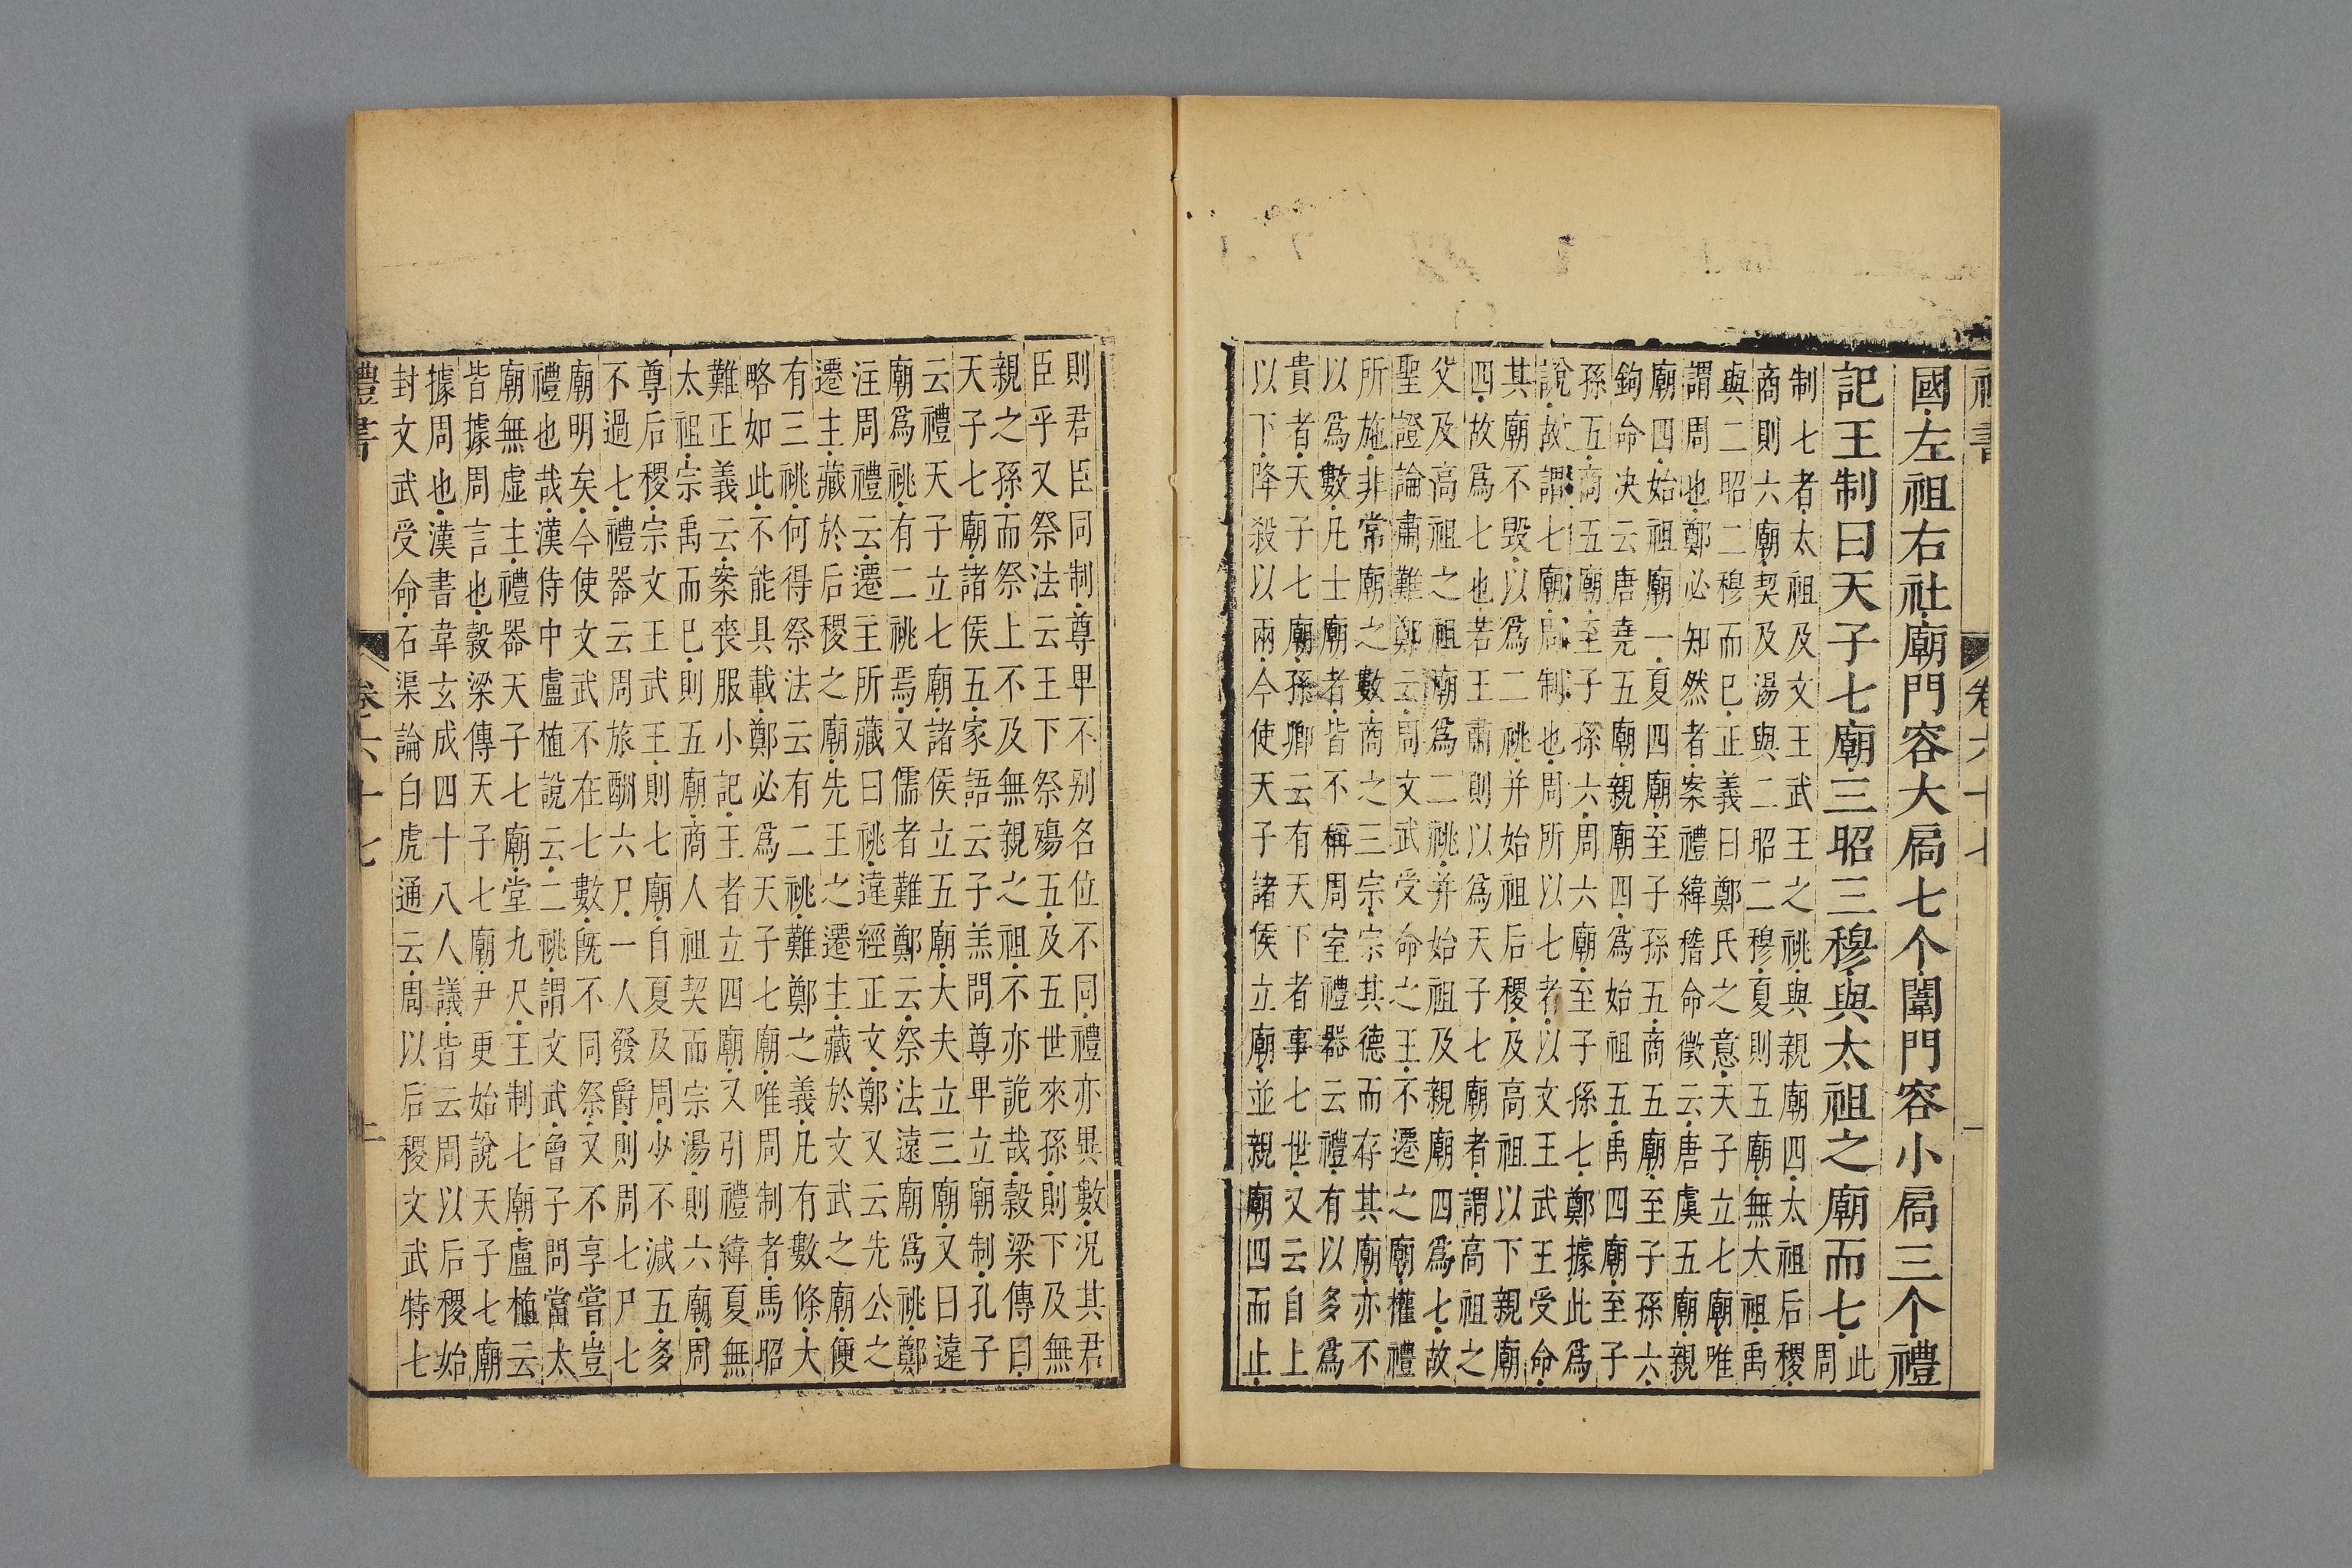 禮書 卷六十七 一
國左祖右社廟門容大扃七个闈門容小扃三个禮
記王制曰天子七廟三昭三穆與太祖之廟而七此周
制七者太祖及文王武王之祧與親廟四太祖后稷
商則六廟契及湯與二昭二穆夏則五廟無大祖禹
與二昭二穆而已正義曰鄭氏之意天子立七廟唯
謂周也鄭必知然者案禮緯稽命徵云唐虞五廟親
廟四始祖廟一夏四廟至子孫五商五廟至子孫六
鉤命决云唐堯五廟親廟四爲始祖五禹四廟至子
孫五商五廟至子孫六周六廟至子孫七鄭據此爲
說故謂七廟周制也周所以七者以文王武王受命
其廟不毀以爲二祧并始祖后稷及高祖以下親廟
四故爲七也若王肅則以爲天子七廟者謂高祖之
父及高祖之祖廟爲二祧并始祖及親廟四爲七故
聖證論肅難鄭云周文武受命之王不遷之廟權禮
所施非常廟之數商之三宗宗其德而存其廟亦不
以爲數凡士廟者皆不稱周室禮器云禮有以多爲
貴者天子七廟孫卿云有天下者事七世又云自上
以下降殺以兩今使天子諸侯立廟並親廟四而止
則君臣同制尊卑不别名位不同禮亦異數况其君
臣乎又祭法云王下祭殤五及五世來孫則下及無
親之孫而祭上不及無親之祖不亦詭哉穀梁傳曰
天子七廟諸侯五家語云子羔問尊卑立廟制孔子
云禮天子立七廟諸侯立五廟大夫立三廟又曰遠
廟爲祧有二祧焉又儒者難鄭云祭法遠廟爲祧鄭
注周禮云遷主所藏曰祧違經正文鄭又云先公之
遷主藏於后稷之廟先王之遷主藏於文武之廟便
有三祧何得祭法云有二祧難鄭之義凡有數條大
略如此不能具載鄭必爲天子七廟唯周制者馬昭
難正義云案喪服小記王者立四廟又引禮緯夏無
太祖宗禹而已則五廟商人祖契而宗湯則六廟周
尊后稷宗文王武王則七廟自夏及周少不減五多
不過七禮器云周旅酬六尸一人發爵則周七尸七
廟明矣今使文武不在七數既不同祭又不享嘗豈
禮也哉漢侍中盧植說云二祧謂文武曾子問當太
廟無虛主禮器天子七廟堂九尺王制七廟盧植云
皆據周言也穀梁傳天子七廟尹更始說天子七廟
據周也漢書韋玄成四十八人議皆云周以后稷始
封文武受命石渠論白虎通云周以后稷文武特七
禮書 卷六十七 二